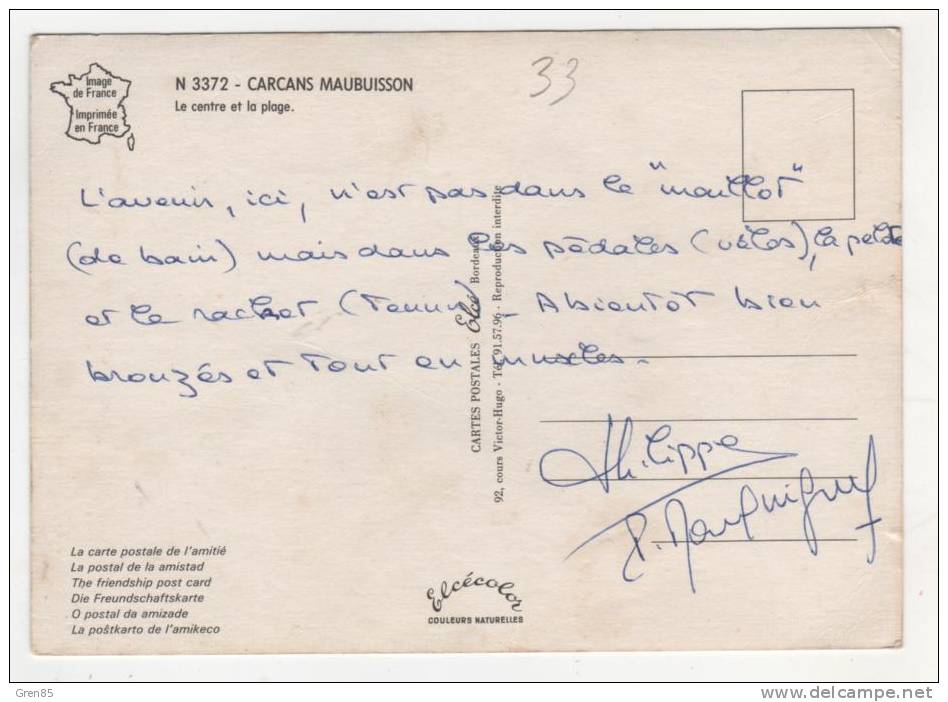 Image
de France
Imprimée
en France
N 3372 - CARCANS MAUBUISSON
Le centre et la plage.
33
L'avenir, ici, n'est pas dans le "maillot"
(de bain) mais dans les pédales (vélos), la pelote
et la racket (Tennis) _ A bientôt bien
bronzés et tout en muscles.
Philippe
P.
CARTES POSTALES Elcé Bordeaux
92, cours Victor-Hugo - Tél. 91.57.96 - Reproduction interdite
La carte postale de l'amitié
La postal de la amistad
The friendship post card
Die Freundschaftskarte
O postal da amizade
La poŝtkarto de l'amikeco
Elcécolor
COULEURS NATURELLES
Gren85
www.delcampe.net